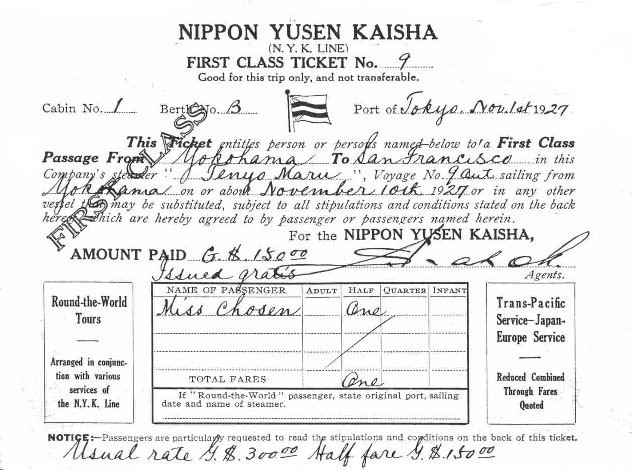 NIPPON YUSEN KAISHA
(N.Y.K. LINE)
FIRST CLASS TICKET No. 9
Good for this trip only, and not transferable.
Cabin No. 1 Berth No. B Port of Tokyo. Nov. 1st 1927
FIRST CLASS
This Ticket entitles person or persons named below to a First Class
Passage From Yokohama To San Francisco in this
Company's steamer "Tenyo Maru", Voyage No. 9 Out sailing from
Yokohama on or about November 10th 1927 or in any other
vessel that may be substituted, subject to all stipulations and conditions stated on the back
hereof which are hereby agreed to by passenger or passengers named herein.
For the NIPPON YUSEN KAISHA,
AMOUNT PAID G.$. 150.00
Issued gratis Agents.
Round-the-World
Tours
Arranged in conjunc-
tion with various
services of
the N.Y.K. Line
NAME OF PASSENGER ADULT HALF QUARTER INFANT
Miss Chosen One
TOTAL FARES One
If "Round-the-World" passenger, state original port, sailing
date and name of steamer.
Trans-Pacific
Service—Japan-
Europe Service
Reduced Combined
Through Fares
Quoted
NOTICE:—Passengers are particularly requested to read the stipulations and conditions on the back of this ticket.
Usual rate G.$. 300.00 Half fare G.$. 150.00